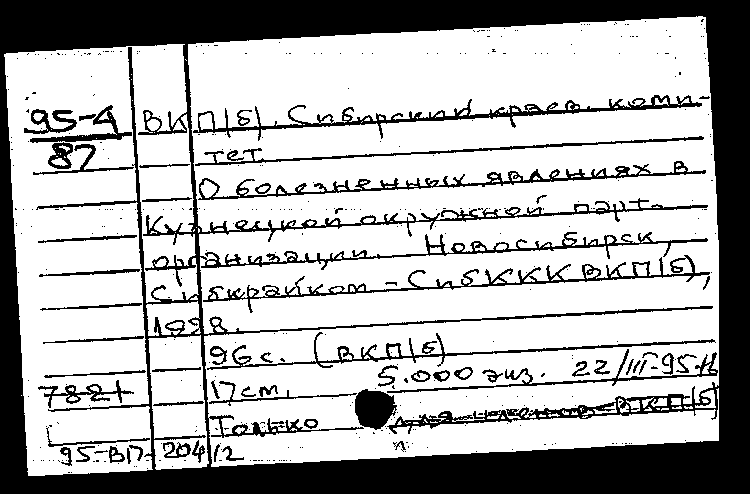 95-4 ВКП(б). Сибирский краев. коми-
87 тет
О болезненных явлениях в
Кузнецкой окружной парт.
организации. Новосибирск,
Сибкрайком - СибККК ВКП(б),
1928.
96 с. (ВКП(б)
7821 17 см. 5.000 экз. 22/III-95
Только для членов ВКП(б)
95-ВП-204/2